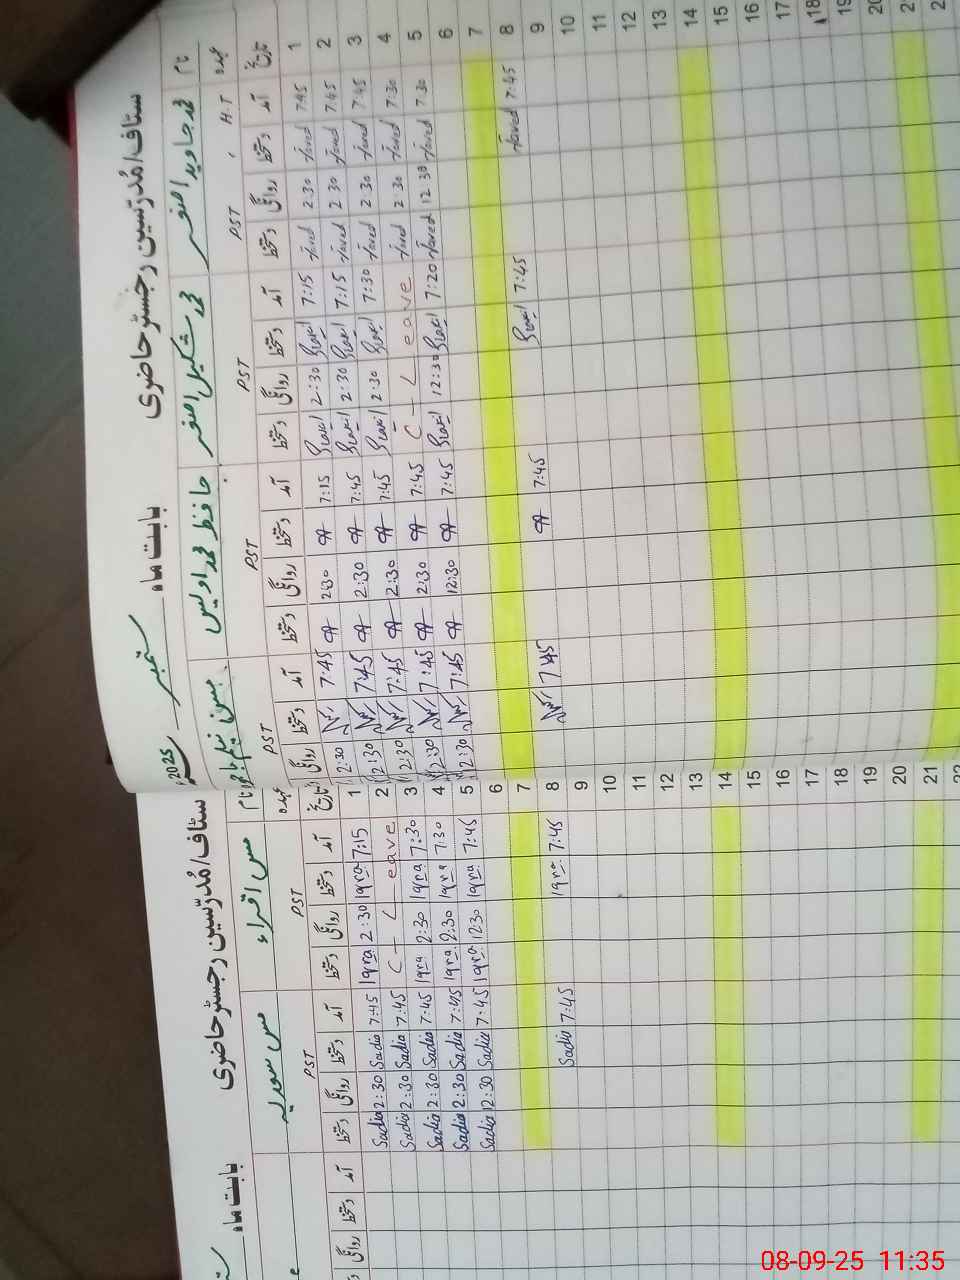 سٹاف/مُدرّسین رجسٹر حاضری بابت ماہ ستمبر 2025ء
نام محمد جاوید اصغر محمد شکیل اصغر حافظ محمد اویس مس نیلم
عہدہ H.T PST PST PST PST
تاریخ آمد دستخط روانگی دستخط آمد دستخط روانگی دستخط آمد دستخط روانگی دستخط آمد دستخط روانگی
1 7:45 Javed 2:30 Javed 7:15 Shakil 2:30 Shakil 7:15 2:30 7:45 2:30
2 7:45 Javed 2:30 Javed 7:15 Shakil 2:30 Shakil 7:45 2:30 7:45 2:30
3 7:45 Javed 2:30 Javed 7:30 Shakil 2:30 Shakil 7:45 2:30 7:45 2:30
4 7:30 Javed 2:30 Javed C-Leave 7:45 2:30 7:45 2:30
5 7:30 Javed 12:30 Javed 7:20 Shakil 12:30 Shakil 7:45 12:30 7:45 12:30
6
7
8 7:45 Javed 7:45 Shakil 7:45 7:45
9
10
11
12
13
14
15
16
17
18
19
20
21
سٹاف/مُدرّسین رجسٹر حاضری بابت ماہ
نام مس اقراء مس سعدیہ
عہدہ PST PST
تاریخ آمد دستخط روانگی دستخط آمد دستخط روانگی دستخط آمد دستخط روانگی
1 7:15 Iqra 2:30 Iqra 7:45 Sadia 2:30 Sadia
2 C-Leave 7:45 Sadia 2:30 Sadia
3 7:30 Iqra 2:30 Iqra 7:45 Sadia 2:30 Sadia
4 7:30 Iqra 2:30 Iqra 7:45 Sadia 2:30 Sadia
5 7:45 Iqra 12:30 Iqra 7:45 Sadia 12:30 Sadia
6
7
8 7:45 Iqra 7:45 Sadia
9
10
11
12
13
14
15
16
17
18
19
20
21
22
08-09-25 11:35